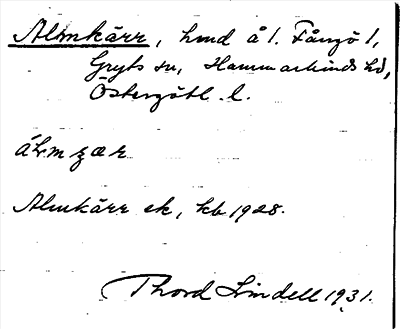 Almkärr, hmd å l. Fångö 1,
Gryts sn, Hammarkinds hd,
Östergötl. l.
Almkärr ek, kb 1928.
Thord Lindell 1931.